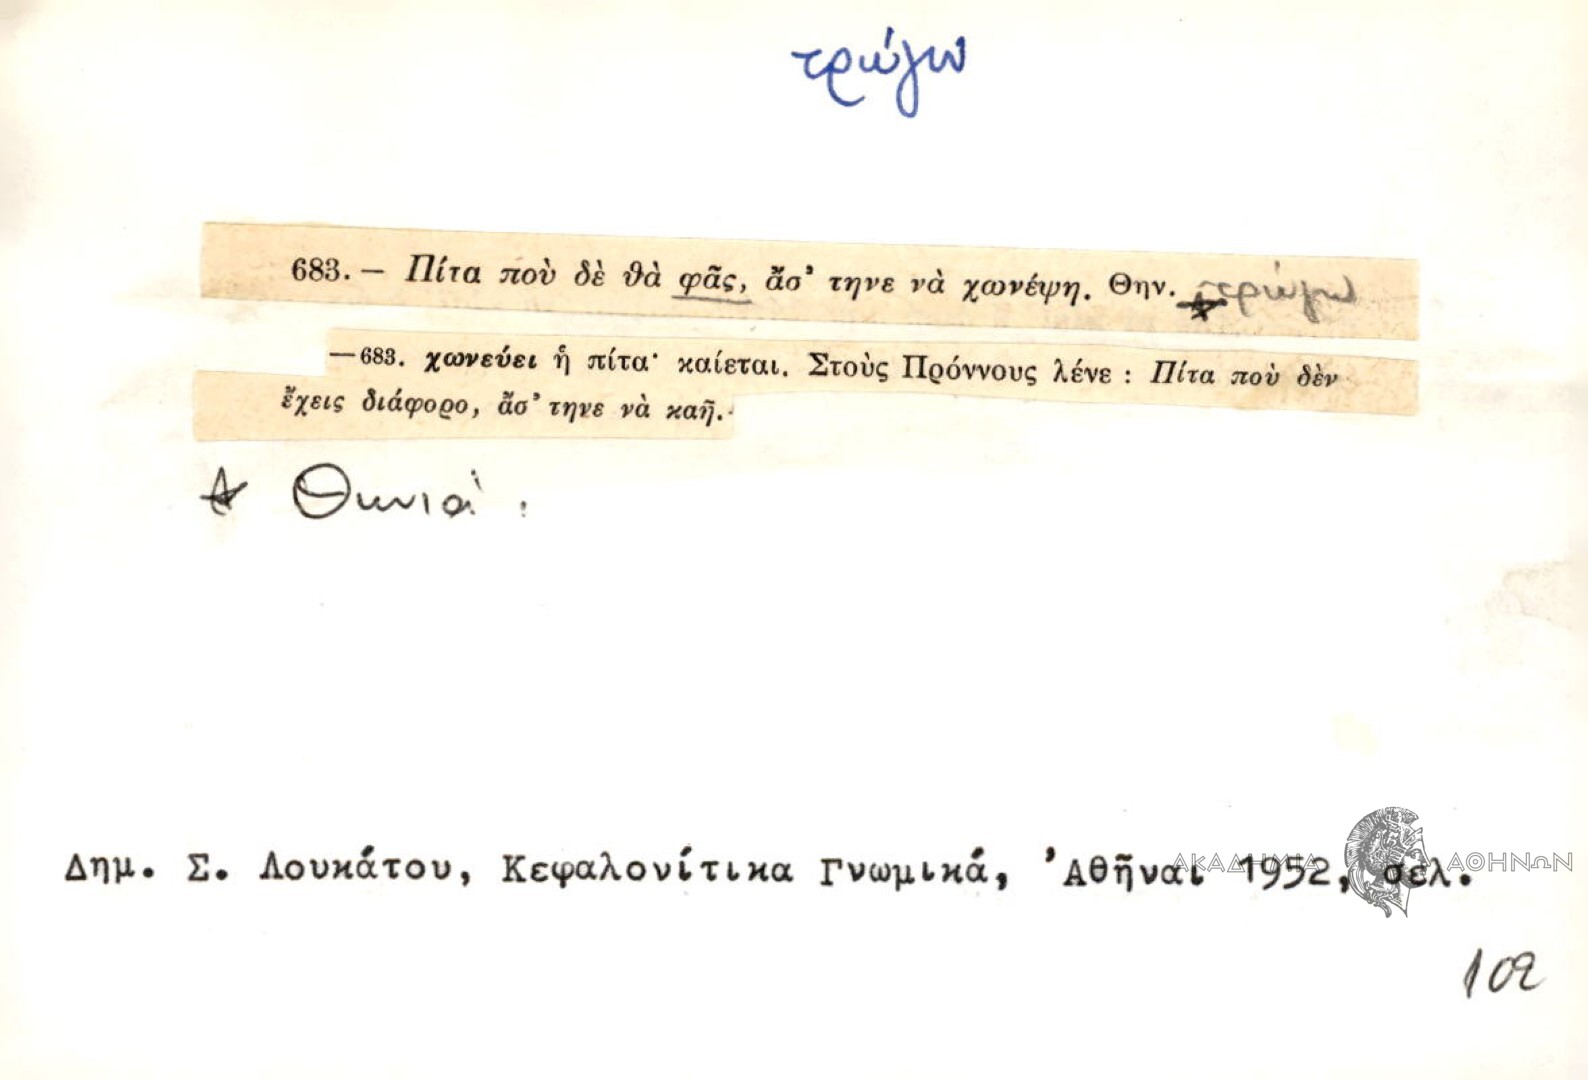 τρώγω
683. — Πίτα ποὺ δὲ θὰ φᾶς, ἄσ' τηνε νὰ χωνέψη. Θην. τρώγω
—683. χωνεύει ἡ πίτα· καίεται. Στοὺς Πρόννους λένε : Πίτα ποὺ δὲν
ἔχεις διάφορο, ἄσ' τηνε νὰ καῆ.
Θηνιά
Δημ. Σ. Λουκάτου, Κεφαλονίτικα Γνωμικά, Ἀθῆναι 1952, σελ.
ΑΚΑΔΗΜΙΑ ΑΘΗΝΩΝ
102